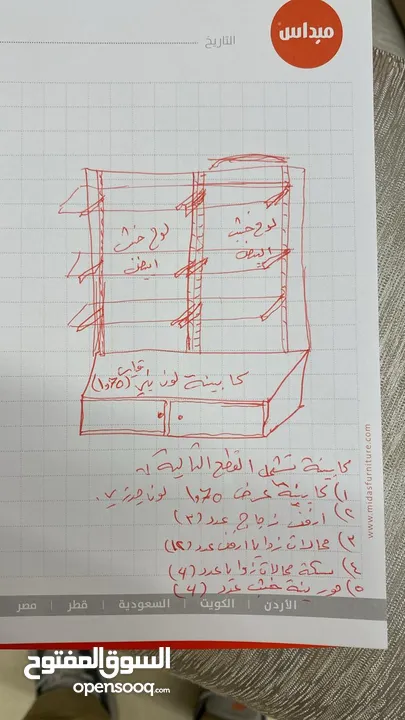 ميداس
التاريخ
لوح خشب
ابيض
لوح خشب
ابيض
كابينة لون
كابينة تشمل القطع التالية
١) كابينة عرض ١٫٧٥ لون
٢) ارفف زجاج عدد (٣)
٣) حمالات زوايا ارفف عدد (١٢)
٤) سكة حمالات زوايا عدد (٤)
٥) خشب عدد (٤)
www.midasfurniture.com
الأردن | الكويت | السعودية | قطر | مصر
السوق المفتوح
opensooq.com